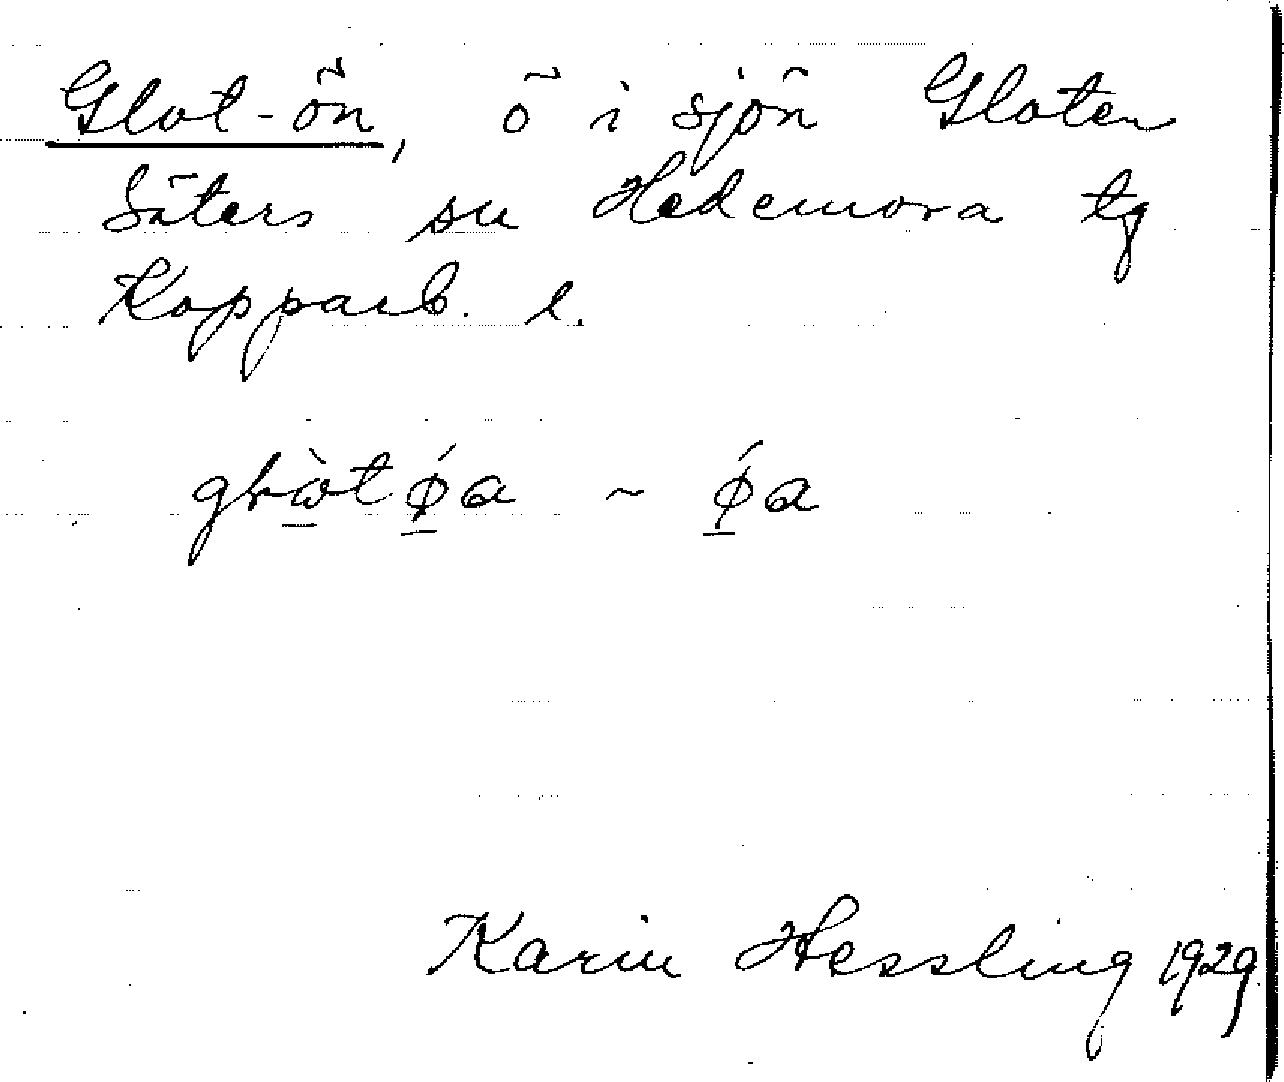 Glot-ön, ö i sjön Gloten
Säters sn Hedemora tg
Kopparb. l.
~
Karin Hessling 1929